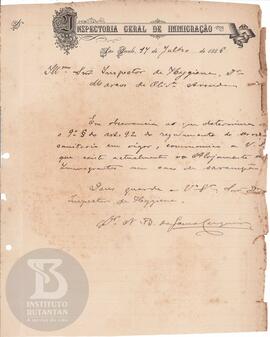 INSPECTORIA GERAL DE IMMIGRAÇÃO
São Paulo, 17 de Julho de 1896
Illmo. Snr. Inspector de Hygiene, Dr.
Marcos de Olivª Arruda
Em observancia ao que determina o
9º § do art. 92 do regulamento do
sanitario em vigor, communico a V. Sª
que existe actualmente no Alojamento de
Immigrantes um caso de sarampão.
Deus guarde a V. Sª Snr Dr.
Inspector de Hygiene.
INSTITUTO
BUTANTAN
A serviço da vida